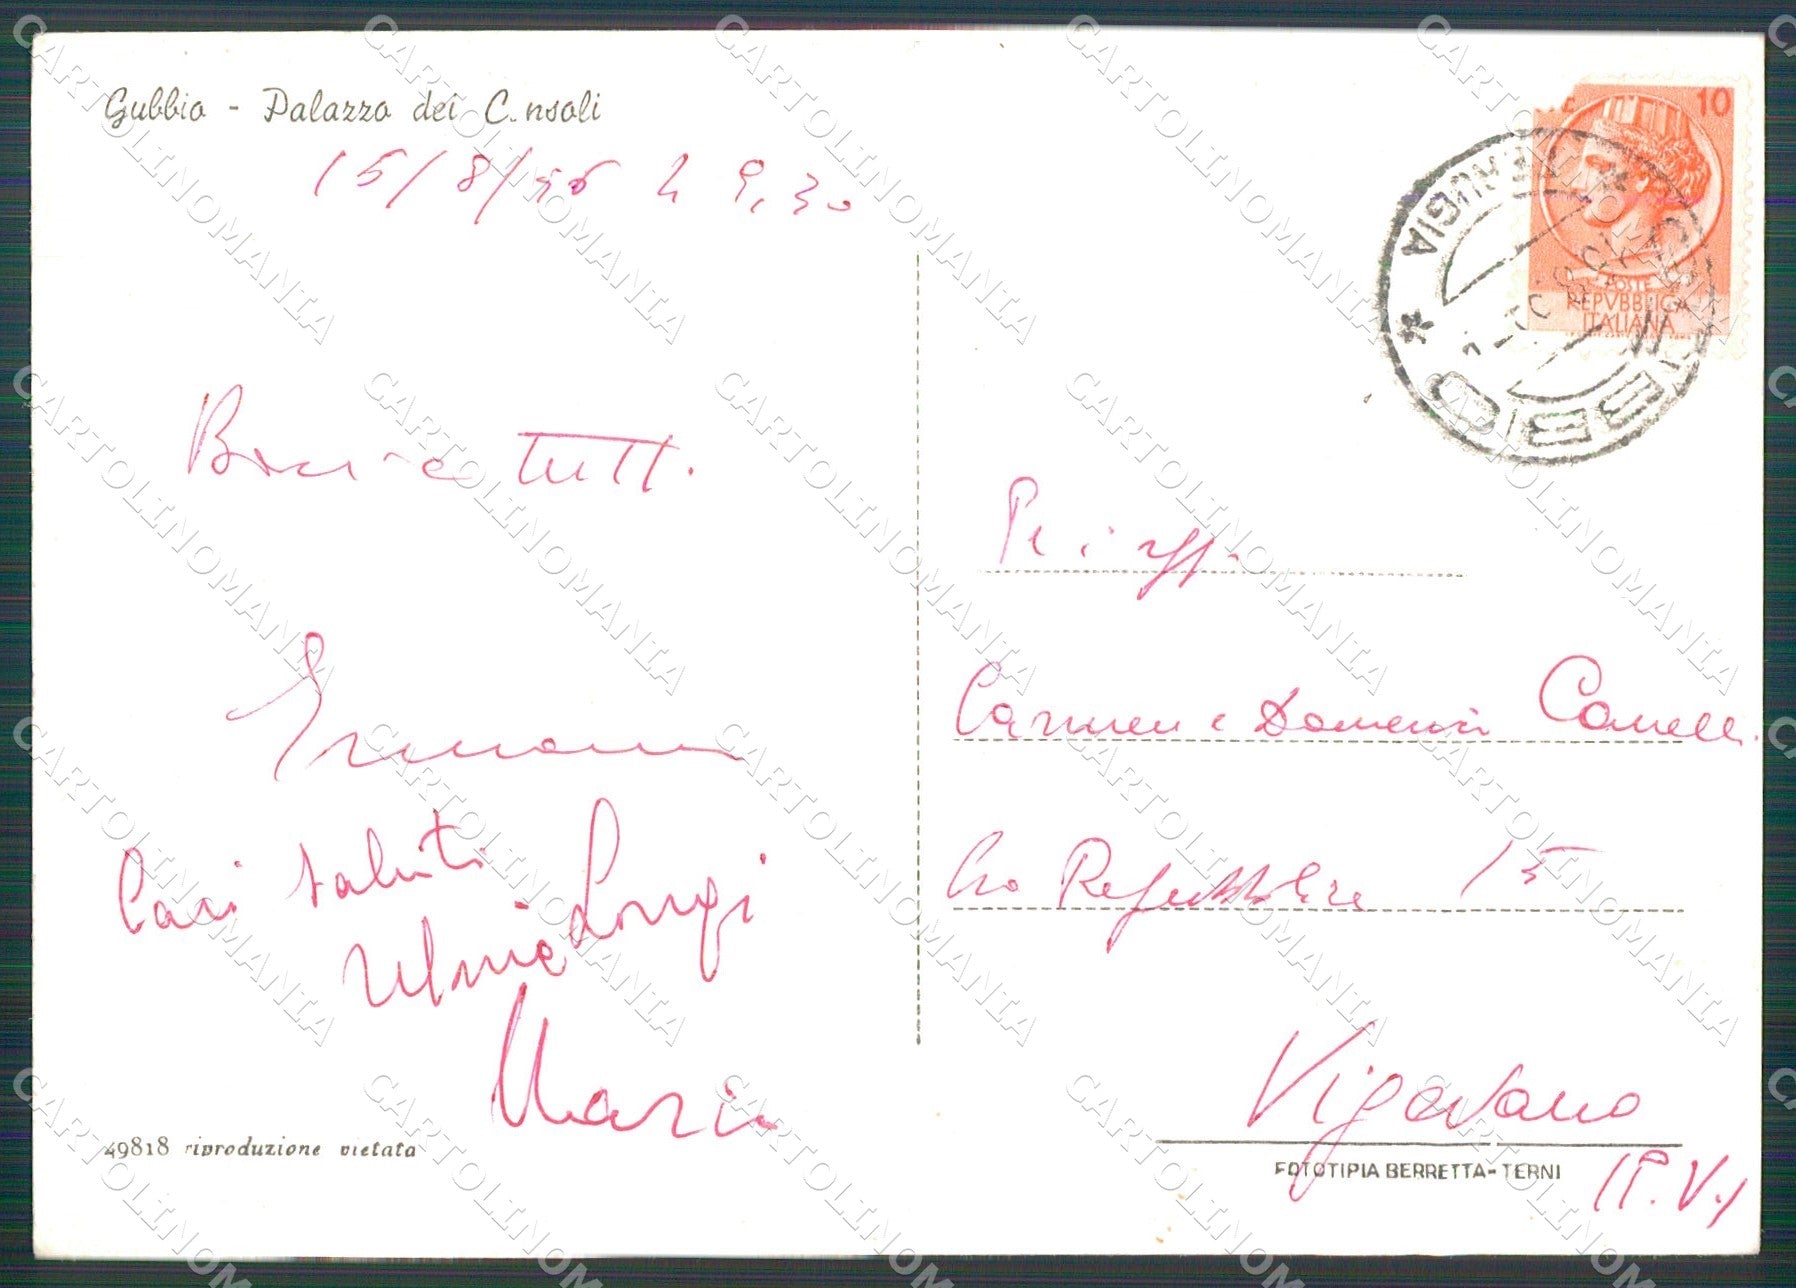 Gubbio - Palazzo dei C.nsoli
15/8/56 h 9,30
Baci a tutti
Cari saluti
Luigi
Maria
49818 riproduzione vietata
10
POSTE
REPVBBLICA
ITALIANA
GUBBIO * PERUGIA *
Carmen e Domenico Canelli
Repubblica 15
Vigevano
(P.V.)
FOTOTIPIA BERRETTA-TERNI
CARTOLINOMANIA